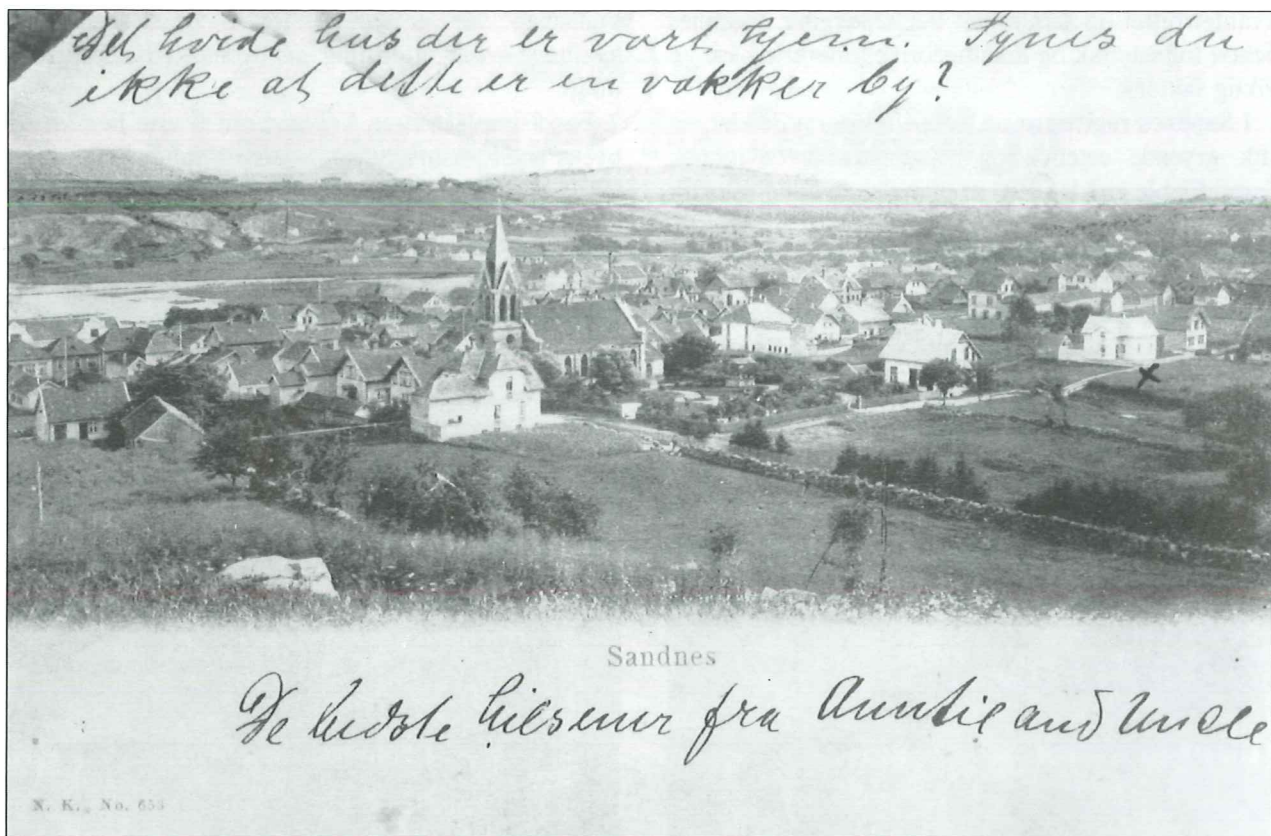 Det hvide hus der er vort hjem. Synes du
ikke at dette er en vakker by?
Sandnes
De bedste hilsener fra Auntie and Uncle
N. K., No. 653